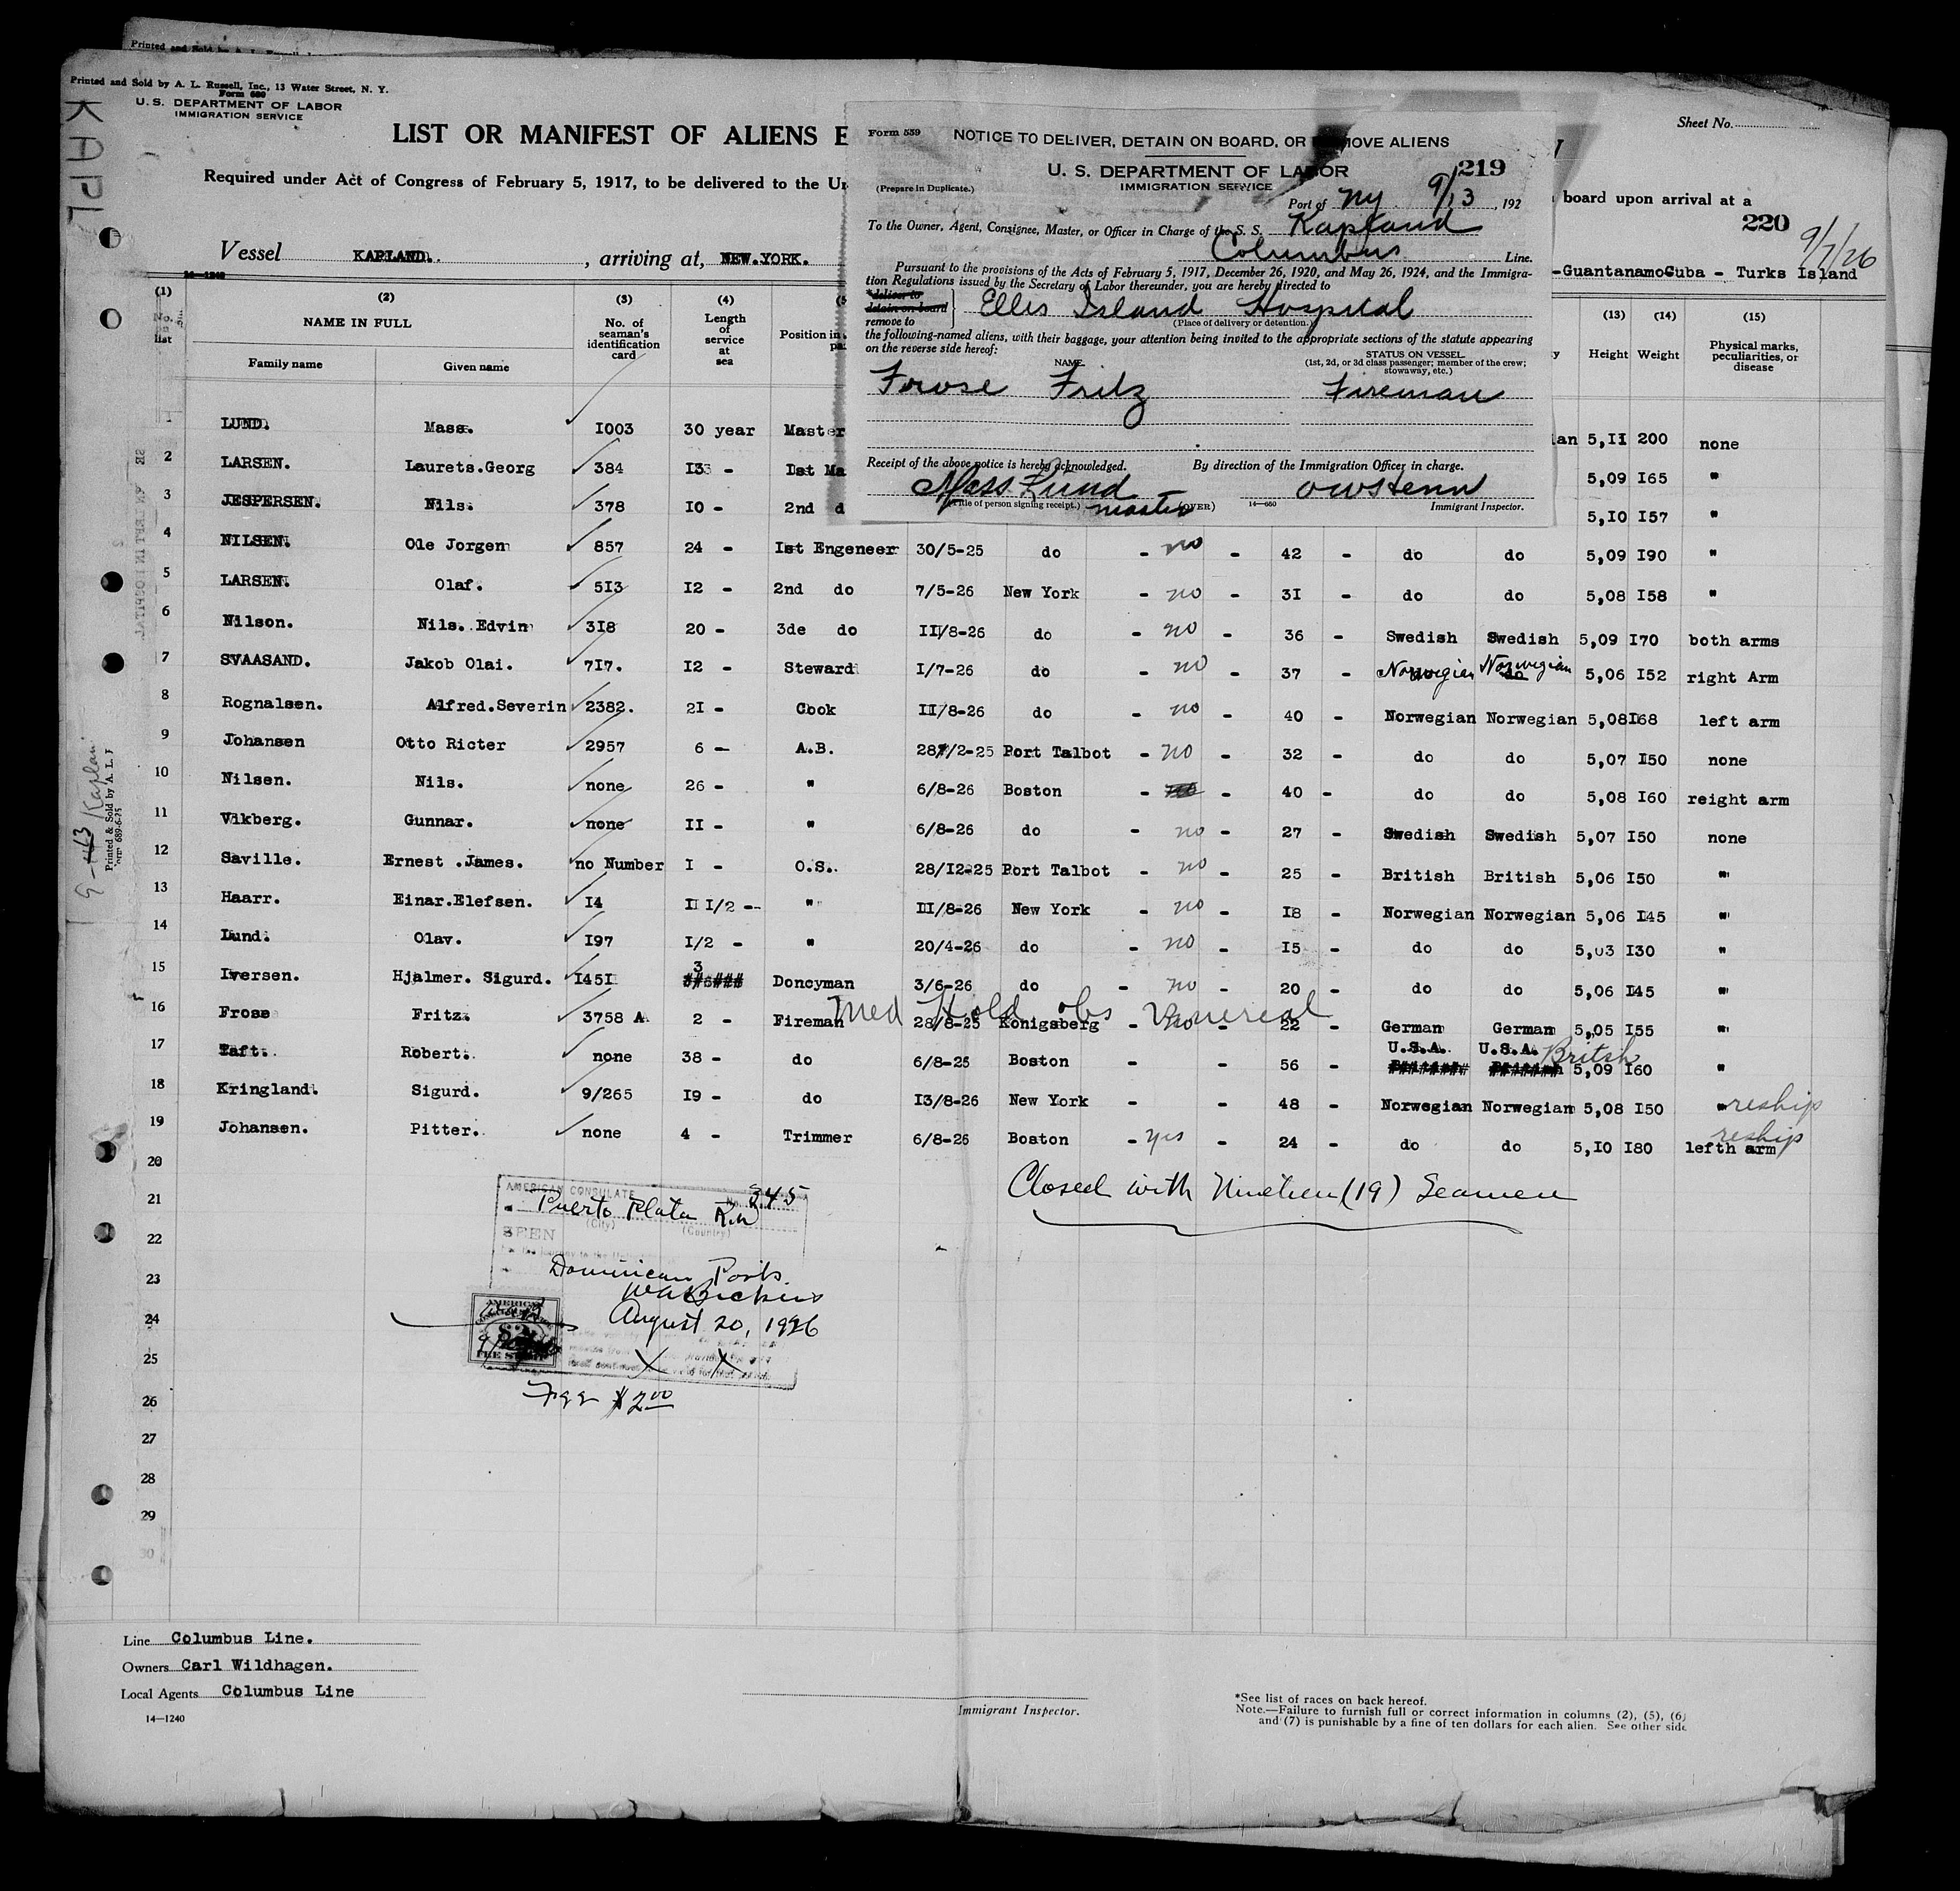 Printed and Sold by A. L. Russell, Inc., 13 Water Street, N. Y.
Form 689
U. S. DEPARTMENT OF LABOR
IMMIGRATION SERVICE
KAPL
Sheet No.
LIST OR MANIFEST OF ALIENS E
Required under Act of Congress of February 5, 1917, to be delivered to the Un
board upon arrival at a
220
9/7/26
Vessel KAPLAND. , arriving at, NEW.YORK.
-GuantanamoCuba - Turks Island
14-1240
Form 539
NOTICE TO DELIVER, DETAIN ON BOARD, OR REMOVE ALIENS
U. S. DEPARTMENT OF LABOR
219
IMMIGRATION SERVICE
(Prepare in Duplicate.)
Port of NY 9/13, 192
To the Owner, Agent, Consignee, Master, or Officer in Charge of the S. S. Kapland
Columbus Line.
Pursuant to the provisions of the Acts of February 5, 1917, December 26, 1920, and May 26, 1924, and the Immigra-
tion Regulations issued by the Secretary of Labor thereunder, you are hereby directed to
*deliver to
detain on board
remove to
Ellis Island Hospital
(Place of delivery or detention.)
the following-named aliens, with their baggage, your attention being invited to the appropriate sections of the statute appearing
on the reverse side hereof:
NAME.
STATUS ON VESSEL
(1st, 2d, or 3d class passenger; member of the crew;
stowaway, etc.)
Frose Fritz Fireman
Receipt of the above notice is hereby acknowledged. By direction of the Immigration Officer in charge.
Mass Lund
(Title of person signing receipt.) master (OVER) 14-660 Immigrant Inspector.
(1) (2) (3) (4) (13) (14) (15)
No. on list
NAME IN FULL
Family name Given name
No. of seaman's identification card
Length of service at sea
Position in
Height Weight
Physical marks, peculiarities, or disease
1 LUND. Mass. 1003 30 year Master 5,11 200 none
2 LARSEN. Laurets.Georg 384 13 - 1st Ma 5,09 165 "
3 JESPERSEN. Nils. 378 10 - 2nd d 5,10 157 "
4 NILSEN. Ole Jorgen 857 24 - 1st Engeneer 30/5-25 do - no - 42 - do do 5,09 190 "
5 LARSEN. Olaf. 513 12 - 2nd do 7/5-26 New York - no - 31 - do do 5,08 158 "
6 Nilson. Nils. Edvin 318 20 - 3de do 11/8-26 do - no - 36 - Swedish Swedish 5,09 170 both arms
7 SVAASAND. Jakob Olai. 717. 12 - Steward 1/7-26 do - no - 37 - Norwegian Norwegian do 5,06 152 right Arm
8 Rognalsen. Alfred.Severin 2382. 21 - Cook 11/8-26 do - no - 40 - Norwegian Norwegian 5,08 168 left arm
9 Johansen Otto Ricter 2957 6 - A.B. 28/2-25 Port Talbot - no - 32 - do do 5,07 150 none
10 Nilsen. Nils. none 26 - " 6/8-26 Boston - - 40 - do do 5,08 160 reight arm
11 Vikberg. Gunnar. none 11 - " 6/8-26 do - no - 27 - Swedish Swedish 5,07 150 none
12 Saville. Ernest .James. no Number 1 - O.S. 28/12-25 Port Talbot - no - 25 - British British 5,06 150 "
13 Haarr. Einar.Elefsen. 14 1 1/2 -- " 11/8-26 New York - no - 18 - Norwegian Norwegian 5,06 145 "
14 Lund. Olav. 197 1/2 - " 20/4-26 do - no - 15 - do do 5,03 130 "
15 Iversen. Hjalmer. Sigurd. 1451 3 Doncyman 3/6-26 do - no - 20 - do do 5,06 145 "
Med Hold obs Venereal
16 Frose Fritz. 3758 A. 2 - Fireman 28/8-25 Konigsberg - no - 22 - German German 5,05 155 "
17 Taft. Robert. none 38 - do 6/8-26 Boston - - 56 - U.S.A. U.S.A. British 5,09 160 "
18 Kringland. Sigurd. 9/265 19 - do 13/8-26 New York - - 48 - Norwegian Norwegian 5,08 150 " reship
19 Johansen. Pitter. none 4 - Trimmer 6/8-26 Boston - yes - 24 - do do 5,10 180 lefth arm reship
20
21
22
23
24
25
26
27
28
29
30
Closed with Nineteen (19) Seamen
AMERICAN CONSULATE
No. 845
Puerto Plata R.D
(City) (Country)
SEEN
Dominican Ports.
August 20, 1926
AMERICAN
$2
FEE STAMP
Fee $2.00
Kapland
Printed & Sold by A. L. F
Form 689-6-25
Line Columbus Line.
Owners Carl Wildhagen.
Local Agents Columbus Line
14-1240
Immigrant Inspector.
*See list of races on back hereof.
Note.—Failure to furnish full or correct information in columns (2), (5), (6)
and (7) is punishable by a fine of ten dollars for each alien. See other side